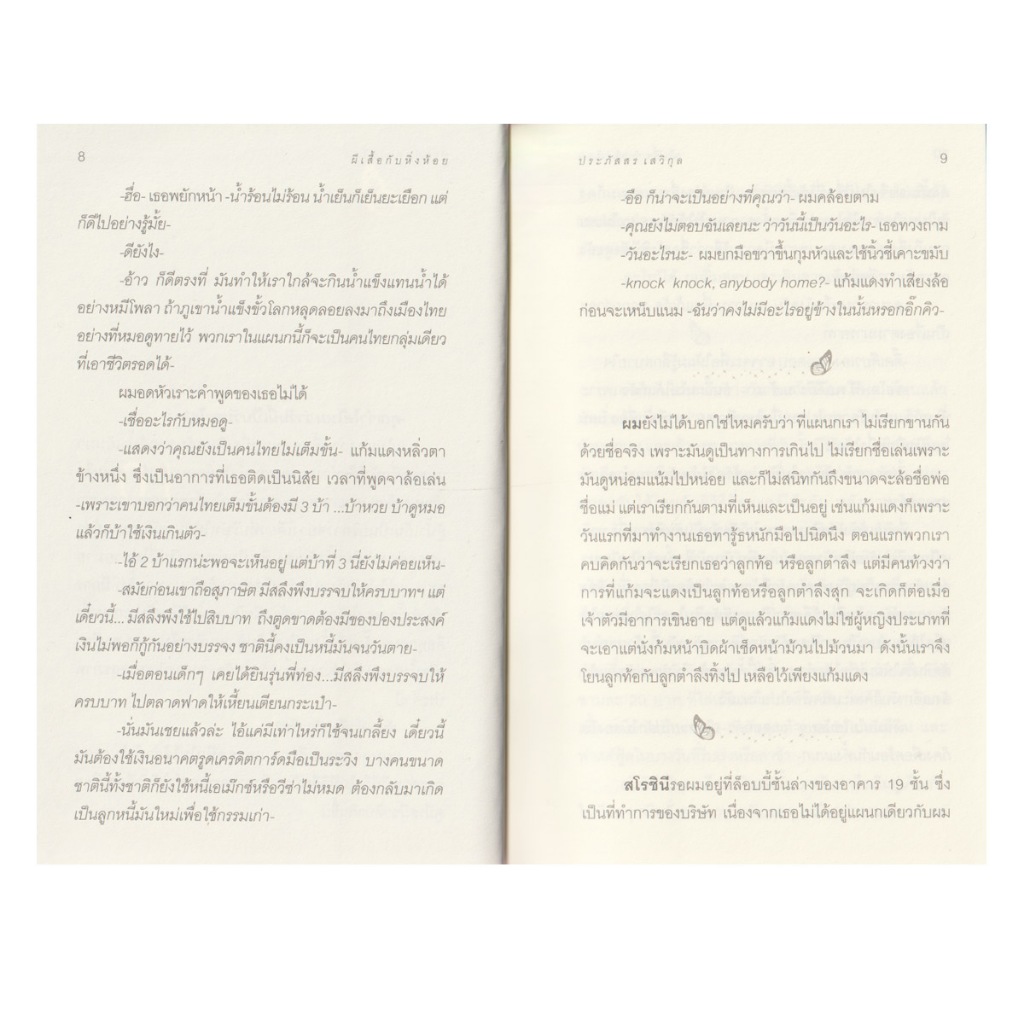 8
ผีเสื้อกับหิ่งห้อย
-ฮื่อ- เธอพยักหน้า -น้ำร้อนไม่ร้อน น้ำเย็นก็เย็นยะเยือก แต่
ก็ดีไปอย่างรู้มั้ย-
-ดียังไง-
-อ้าว ก็ดีตรงที่ มันทำให้เราใกล้จะกินน้ำแข็งแทนน้ำได้
อย่างหมีโพลา ถ้าภูเขาน้ำแข็งขั้วโลกหลุดลอยลงมาถึงเมืองไทย
อย่างที่หมอดูทายไว้ พวกเราในแผนกนี้ก็จะเป็นคนไทยกลุ่มเดียว
ที่เอาชีวิตรอดได้-
ผมอดหัวเราะคำพูดของเธอไม่ได้
-เชื่ออะไรกับหมอดู-
-แสดงว่าคุณยังเป็นคนไทยไม่เต็มขั้น- แก้มแดงหลิ่วตา
ข้างหนึ่ง ซึ่งเป็นอาการที่เธอติดเป็นนิสัย เวลาที่พูดจาล้อเล่น
-เพราะเขาบอกว่าคนไทยเต็มขั้นต้องมี 3 บ้า ...บ้าหวย บ้าดูหมอ
แล้วก็บ้าใช้เงินเกินตัว-
-ไอ้ 2 บ้าแรกน่ะพอจะเห็นอยู่ แต่บ้าที่ 3 นี่ยังไม่ค่อยเห็น-
-สมัยก่อนเขาถือสุภาษิต มีสลึงพึงบรรจบให้ครบบาทฯ แต่
เดี๋ยวนี้... มีสลึงพึงใช้ไปสิบบาท ถึงตูดขาดต้องมีของปองประสงค์
เงินไม่พอก็กู้กันอย่างบรรจง ชาตินี้คงเป็นหนี้มันจนวันตาย-
-เมื่อตอนเด็กๆ เคยได้ยินรุ่นพี่ท่อง...มีสลึงพึงบรรจบให้
ครบบาท ไปตลาดฟาดให้เหี้ยนเตียนกระเป๋า-
-นั่นมันเชยแล้วล่ะ ไอ้แค่มีเท่าไหร่ก็ใช้จนเกลี้ยง เดี๋ยวนี้
มันต้องใช้เงินอนาคตรูดเครดิตการ์ดมือเป็นระวิง บางคนขนาด
ชาตินี้ทั้งชาติก็ยังใช้หนี้เอเม็กซ์หรือวีซ่าไม่หมด ต้องกลับมาเกิด
เป็นลูกหนี้มันใหม่เพื่อใช้กรรมเก่า-
ประภัสสร เสวิกุล
9
-อือ ก็น่าจะเป็นอย่างที่คุณว่า- ผมคล้อยตาม
-คุณยังไม่ตอบฉันเลยนะ ว่าวันนี้เป็นวันอะไร- เธอทวงถาม
-วันอะไรนะ- ผมยกมือขวาขึ้นกุมหัวและใช้นิ้วชี้เคาะขมับ
-knock knock, anybody home?- แก้มแดงทำเสียงล้อ
ก่อนจะเหน็บแนม -ฉันว่าคงไม่มีอะไรอยู่ข้างในนั้นหรอกอิ๊กคิว-
ผมยังไม่ได้บอกใช่ไหมครับว่า ที่แผนกเรา ไม่เรียกขานกัน
ด้วยชื่อจริง เพราะมันดูเป็นทางการเกินไป ไม่เรียกชื่อเล่นเพราะ
มันดูหน่อมแน้มไปหน่อย และก็ไม่สนิทกันถึงขนาดจะล้อชื่อพ่อ
ชื่อแม่ แต่เราเรียกกันตามที่เห็นและเป็นอยู่ เช่นแก้มแดงก็เพราะ
วันแรกที่มาทำงานเธอทารู้ธหนักมือไปนิดนึง ตอนแรกพวกเรา
คบคิดกันว่าจะเรียกเธอว่าลูกท้อ หรือลูกตำลึง แต่มีคนท้วงว่า
การที่แก้มจะแดงเป็นลูกท้อหรือลูกตำลึงสุก จะเกิดก็ต่อเมื่อ
เจ้าตัวมีอาการเขินอาย แต่ดูแล้วแก้มแดงไม่ใช่ผู้หญิงประเภทที่
จะเอาแต่นั่งก้มหน้าบิดผ้าเช็ดหน้าม้วนไปม้วนมา ดังนั้นเราจึง
โยนลูกท้อกับลูกตำลึงทิ้งไป เหลือไว้เพียงแก้มแดง
สโรชินีรอผมอยู่ที่ล็อบบี้ชั้นล่างของอาคาร 19 ชั้น ซึ่ง
เป็นที่ทำการของบริษัท เนื่องจากเธอไม่ได้อยู่แผนกเดียวกับผม